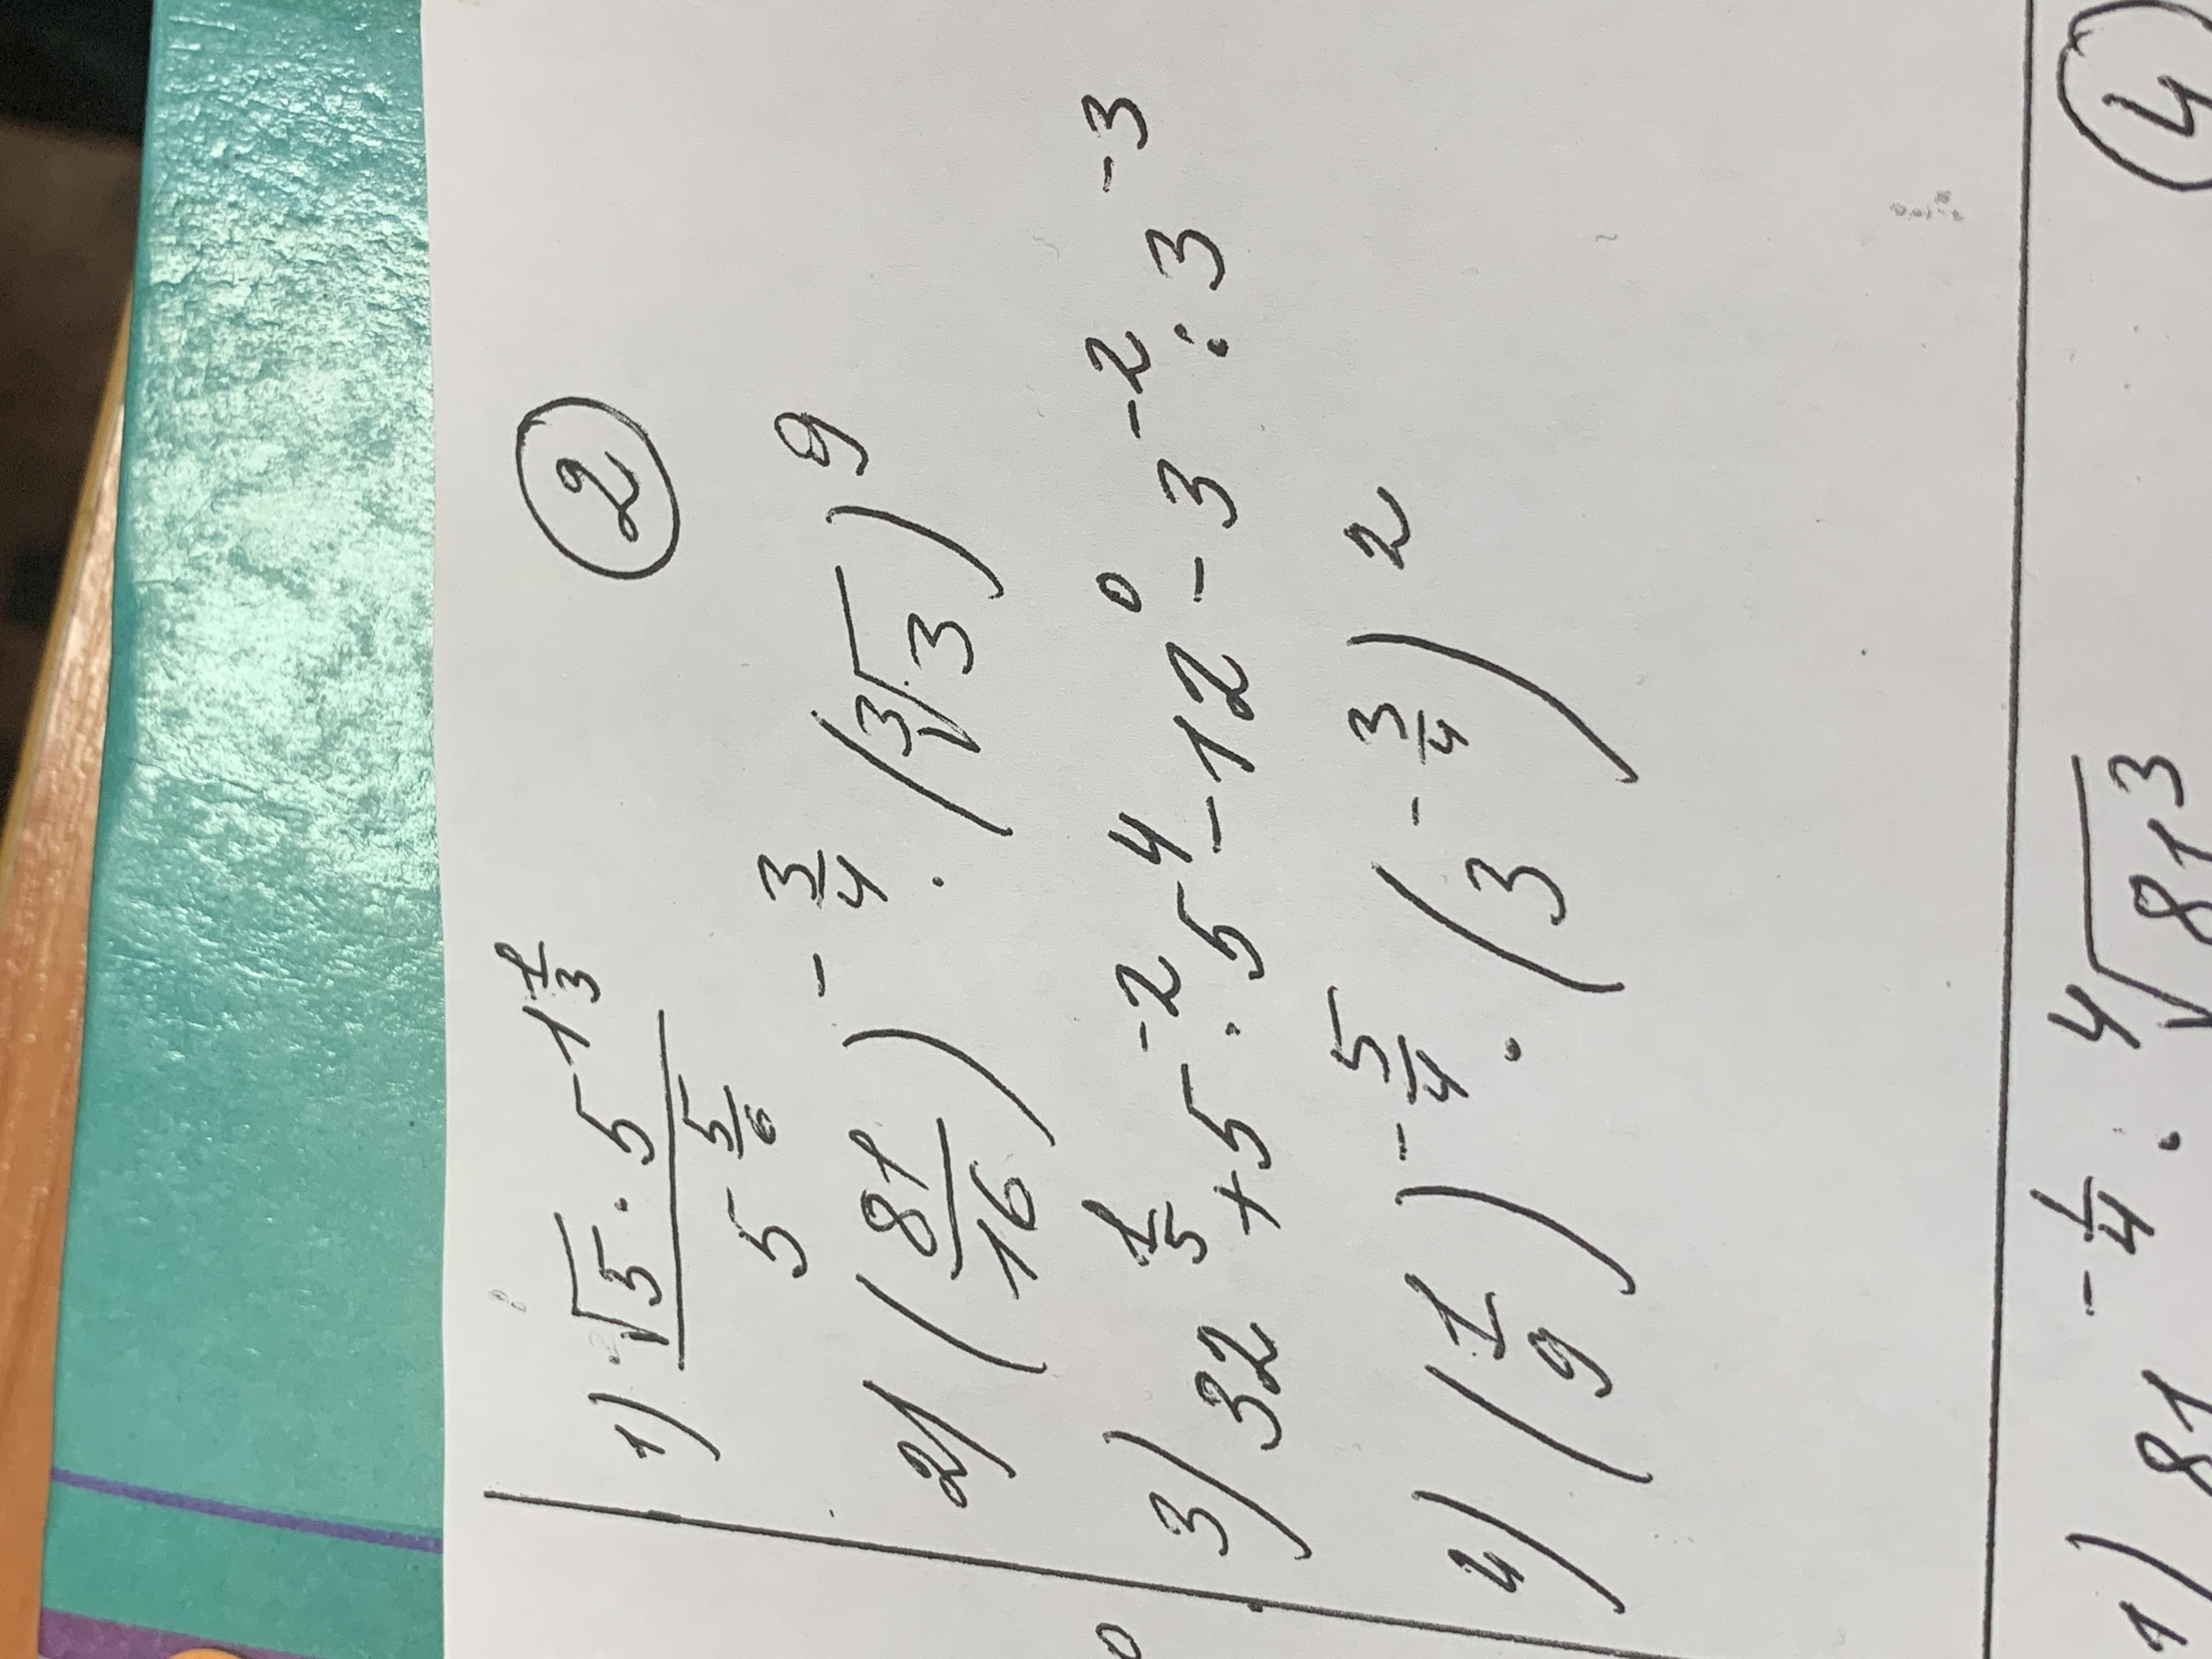 ②
1) (√5 · 5^(1 1/3)) / 5^(5/6)
2) (81/16)^(-3/4) · (∛3)^9
3) 32^(1/5) + 5^(-2) · 5^4 - 12^0 - 3^(-2) : 3^(-3)
4) (1/9)^(-5/4) · (3^(-3/4))^2
0
④
1) 81^(-1/4) · ∜81^3